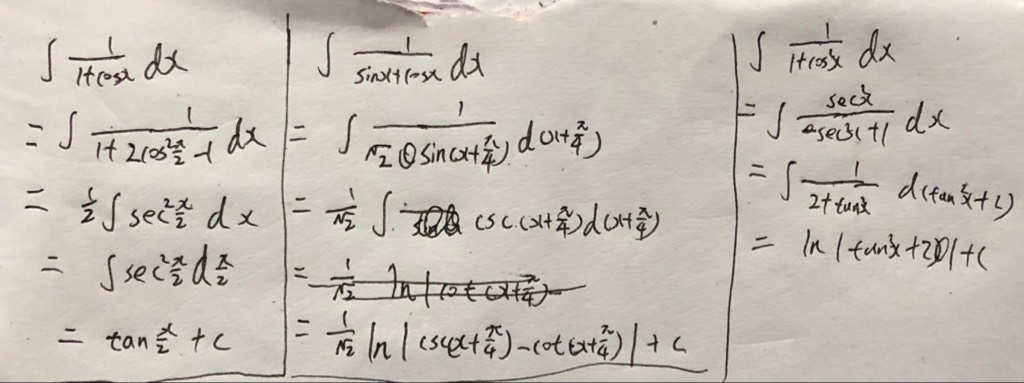 ∫ 1/(1+cosx) dx
= ∫ 1/(1+2cos²(x/2)-1) dx
= 1/2 ∫ sec²(x/2) dx
= ∫ sec²(x/2) d(x/2)
= tan(x/2) + C
∫ 1/(sinx+cosx) dx
= ∫ 1/(√2 sin(x+π/4)) d(x+π/4)
= 1/√2 ∫ csc(x+π/4) d(x+π/4)
= 1/√2 ln|cot(x+π/4)
= 1/√2 ln|csc(x+π/4)-cot(x+π/4)| + C
∫ 1/(1+cos²x) dx
= ∫ sec²x/(sec²x+1) dx
= ∫ 1/(2+tan²x) d(tan²x+2)
= ln|tan²x+2|+C